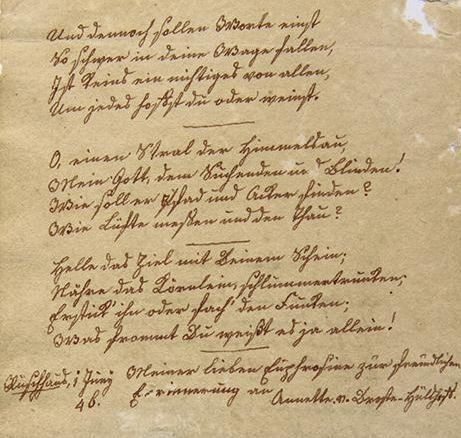 Und dennoch sollen Worte einst
So schwer in deine Wage fallen,
Ist keins ein nichtiges von allen,
Um jedes hoffst du oder weinst.
O, einen Stral der Himmelsau,
Mein Gott, dem Suchenden und Blinden!
Wie soll er Pfad und Acker finden?
Wie Lüfte messen und den Thau?
Helle das Ziel mit Deinem Schein;
Nähre das Körnlein, schlummertrunken;
Erstick' ihn oder fach' den Funken;
Was frommt Du weißt es ja allein!
Rüschhaus, 1 Juny Meiner lieben Euphrosine zur freundlichen
46. Erinnerung an Annette v. Droste-Hülshoff.